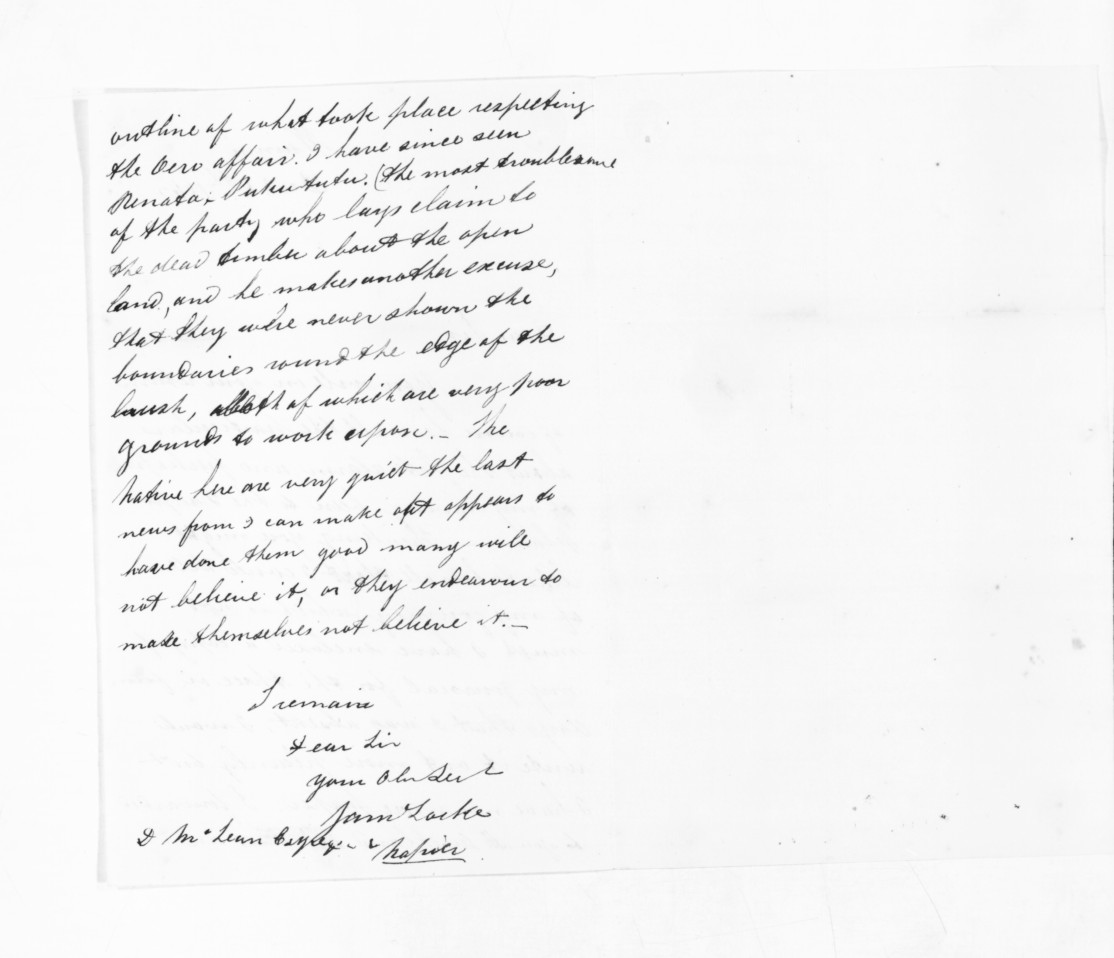 outline of what took place respecting
the Oero affair. I have since seen
Renata Pukututu. (the most troublesome
of the party who lays claim to
the dead timber about the open
land, and he makes another excuse,
that they were never shown the
boundaries round the edge of the
bush, both of which are very poor
grounds to work upon. – The
native here are very quiet the last
news from I can make out appears to
have done them good many will
not believe it, or they endeavour to
make themselves not believe it. –
I remain
Dear Sir
Your Obt Sert
Sam Locke
D McLean Esq
Napier